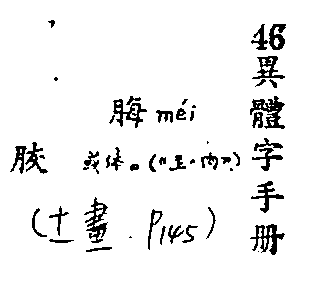 46異體字手册
脢 méi
脄 或体。(《玉·肉》)
(十一畫.P145)